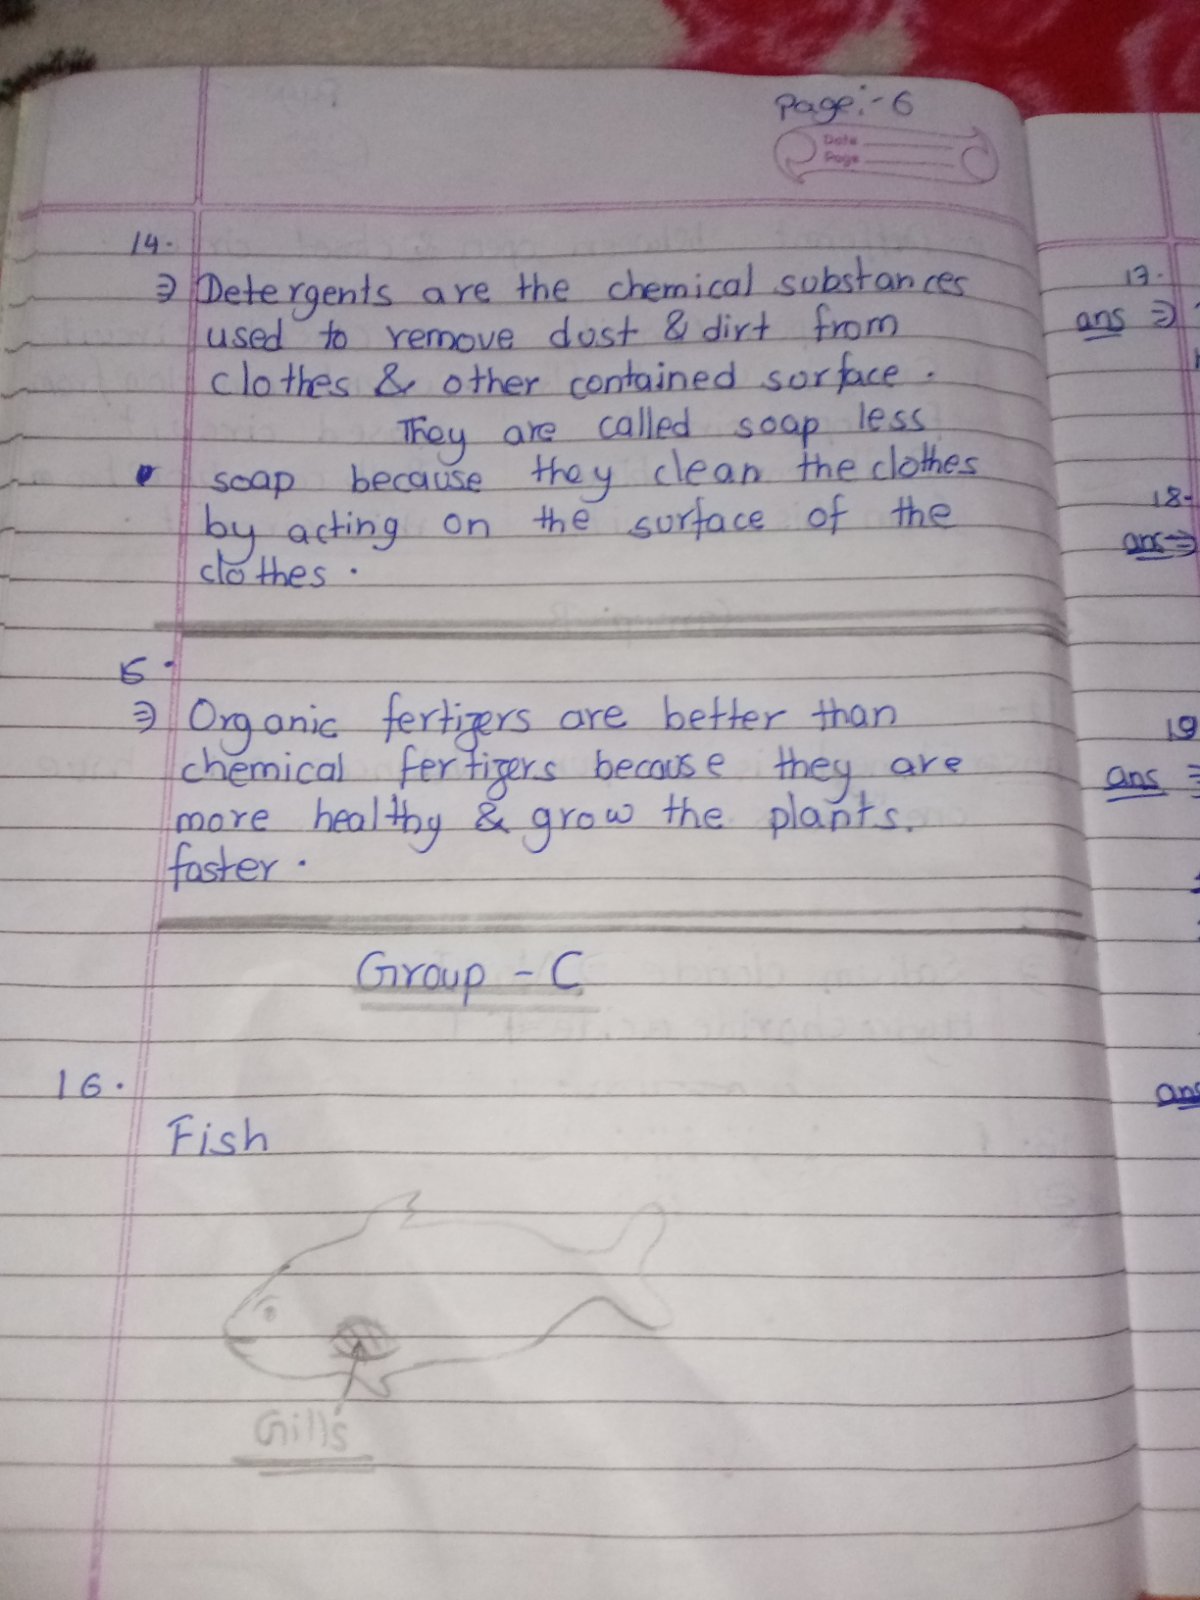 Page:- 6
Date
Page
14.
⇒ Detergents are the chemical substances
used to remove dust & dirt from
clothes & other contained surface.
They are called soap less
soap because they clean the clothes
by acting on the surface of the
clothes.
15.
⇒ Organic fertizers are better than
chemical fertizers because they are
more healthy & grow the plants.
faster.
Group - C
16.
Fish
Gills
17.
ans ⇒
18.
ans ⇒
19
ans
ans